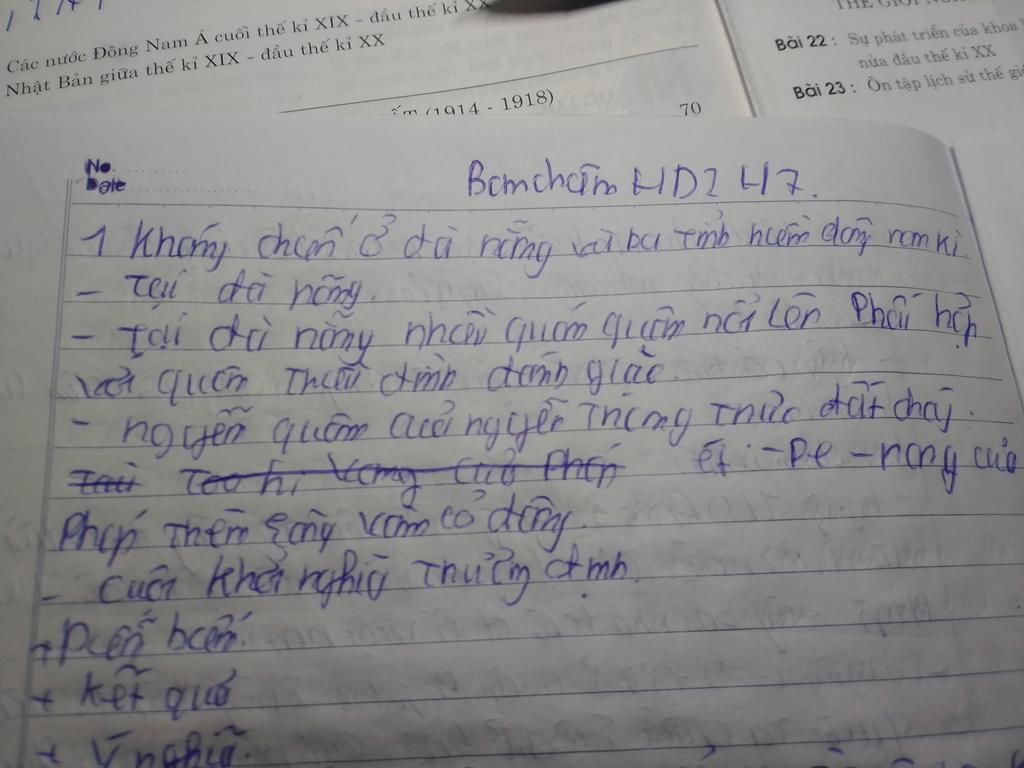 Các nước Đông Nam Á cuối thế kỉ XIX - đầu thế kỉ XX
Nhật Bản giữa thế kỉ XIX - đầu thế kỉ XX
(1914 - 1918)
70
Bài 22 : Sự phát triển của khoa
nửa đầu thế kỉ XX
Bài 23 : Ôn tập lịch sử thế giớ
No.
Date
1 Kháng chến ở đà nẵng và ba tỉnh miền đông nam kì.
- Tại đà nẵng.
- tại đà nẵng nhều quán quân nổi lên Phối hợp
với quân Thiều đình đánh giặc.
- nguyễn quân của nguyễn Trung Trực đốt cháy.
ét -pe -rang của
Pháp Trên sông vàm cỏ đông.
- cuộc khởi nghĩa Trương định.
+ Dcến bcến.
+ kết quả
+ ý nghĩa.